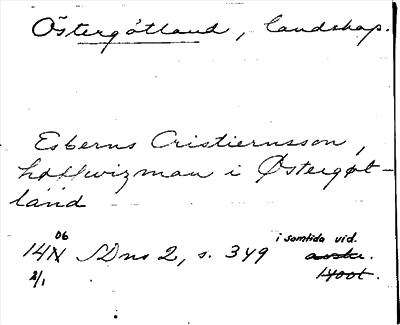 Östergötland, landskap.
Esberns Cristiernsson,
hoffwizman i Østergøt-
länd
06
14 SDns 2, s. 349 i samtida vid.
2/1 1400t.